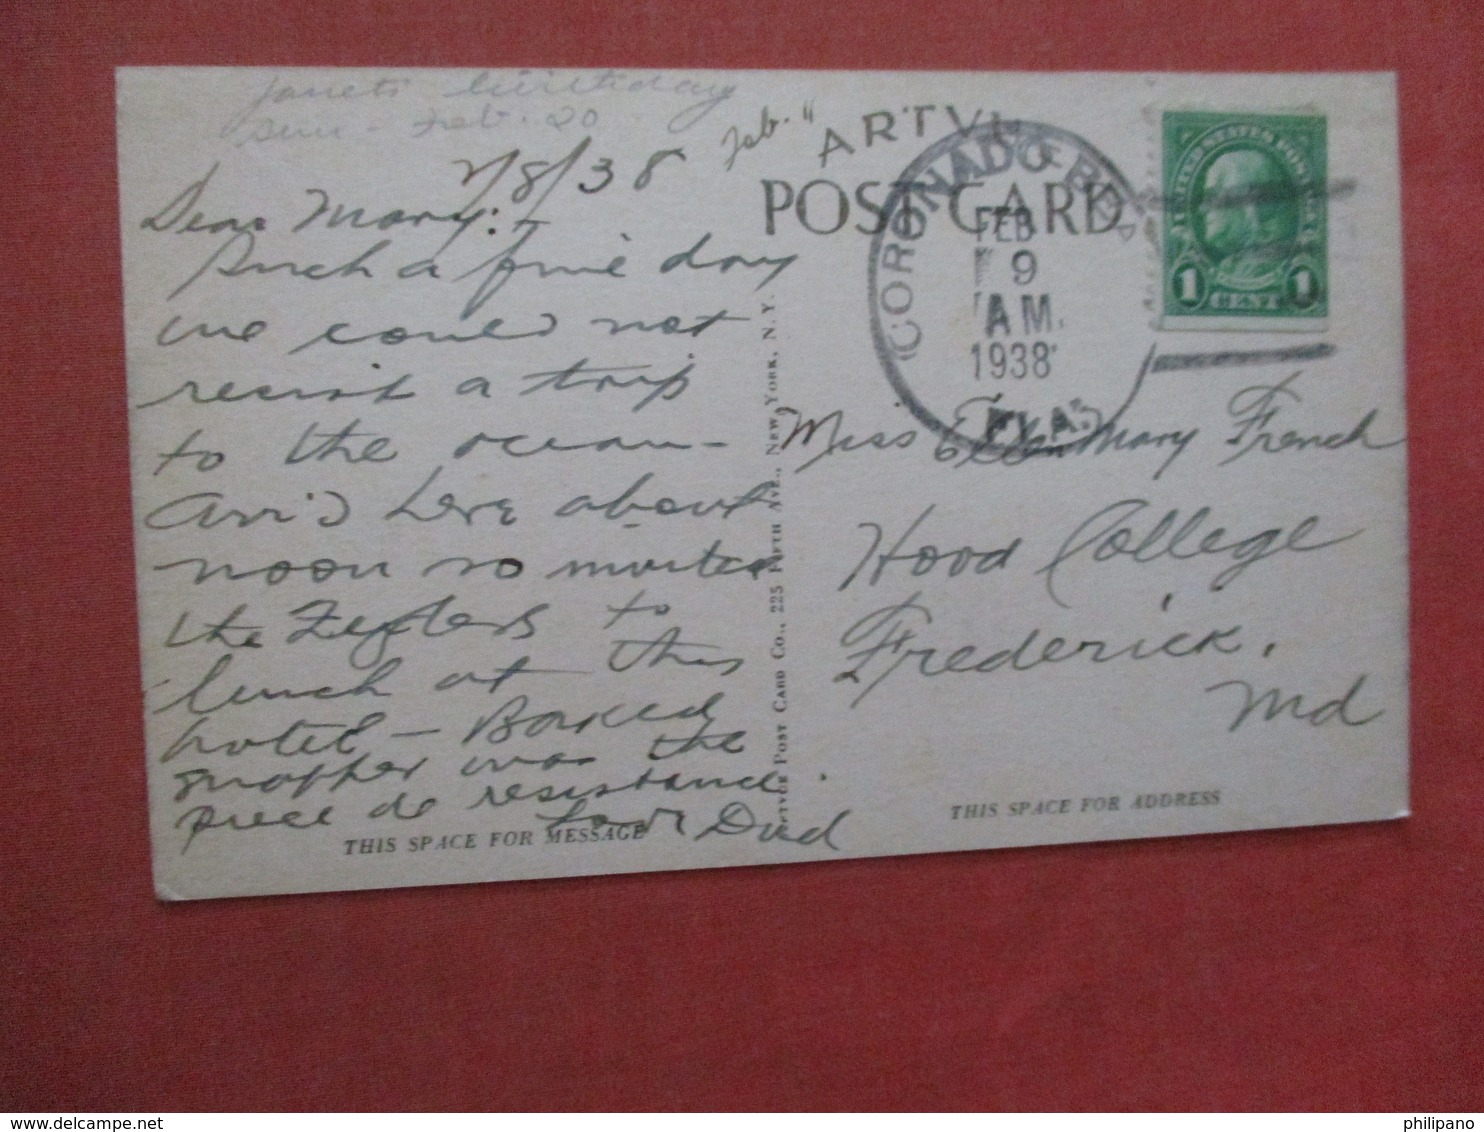 Janets birthday
Sun - Feb. 20
2/8/38
Feb.
"ARTVU
POST CARD
Dear Mary:-
Such a fine day
we could not
resist a trip
to the ocean -
Arri'd here about
noon so invited
the to
lunch at this
hotel - Baked
snapper was the
piece de resistance.
Love Dad
THIS SPACE FOR MESSAGE
POST CARD CO., 225 FIFTH AVE., NEW YORK, N. Y.
CORONADO BE
FEB
9
AM.
1938
FLA.
UNITED STATES POSTAGE
1 CENT 1
Miss Mary French
Hood College
Frederick,
Md
THIS SPACE FOR ADDRESS
philipano
delcampe.net